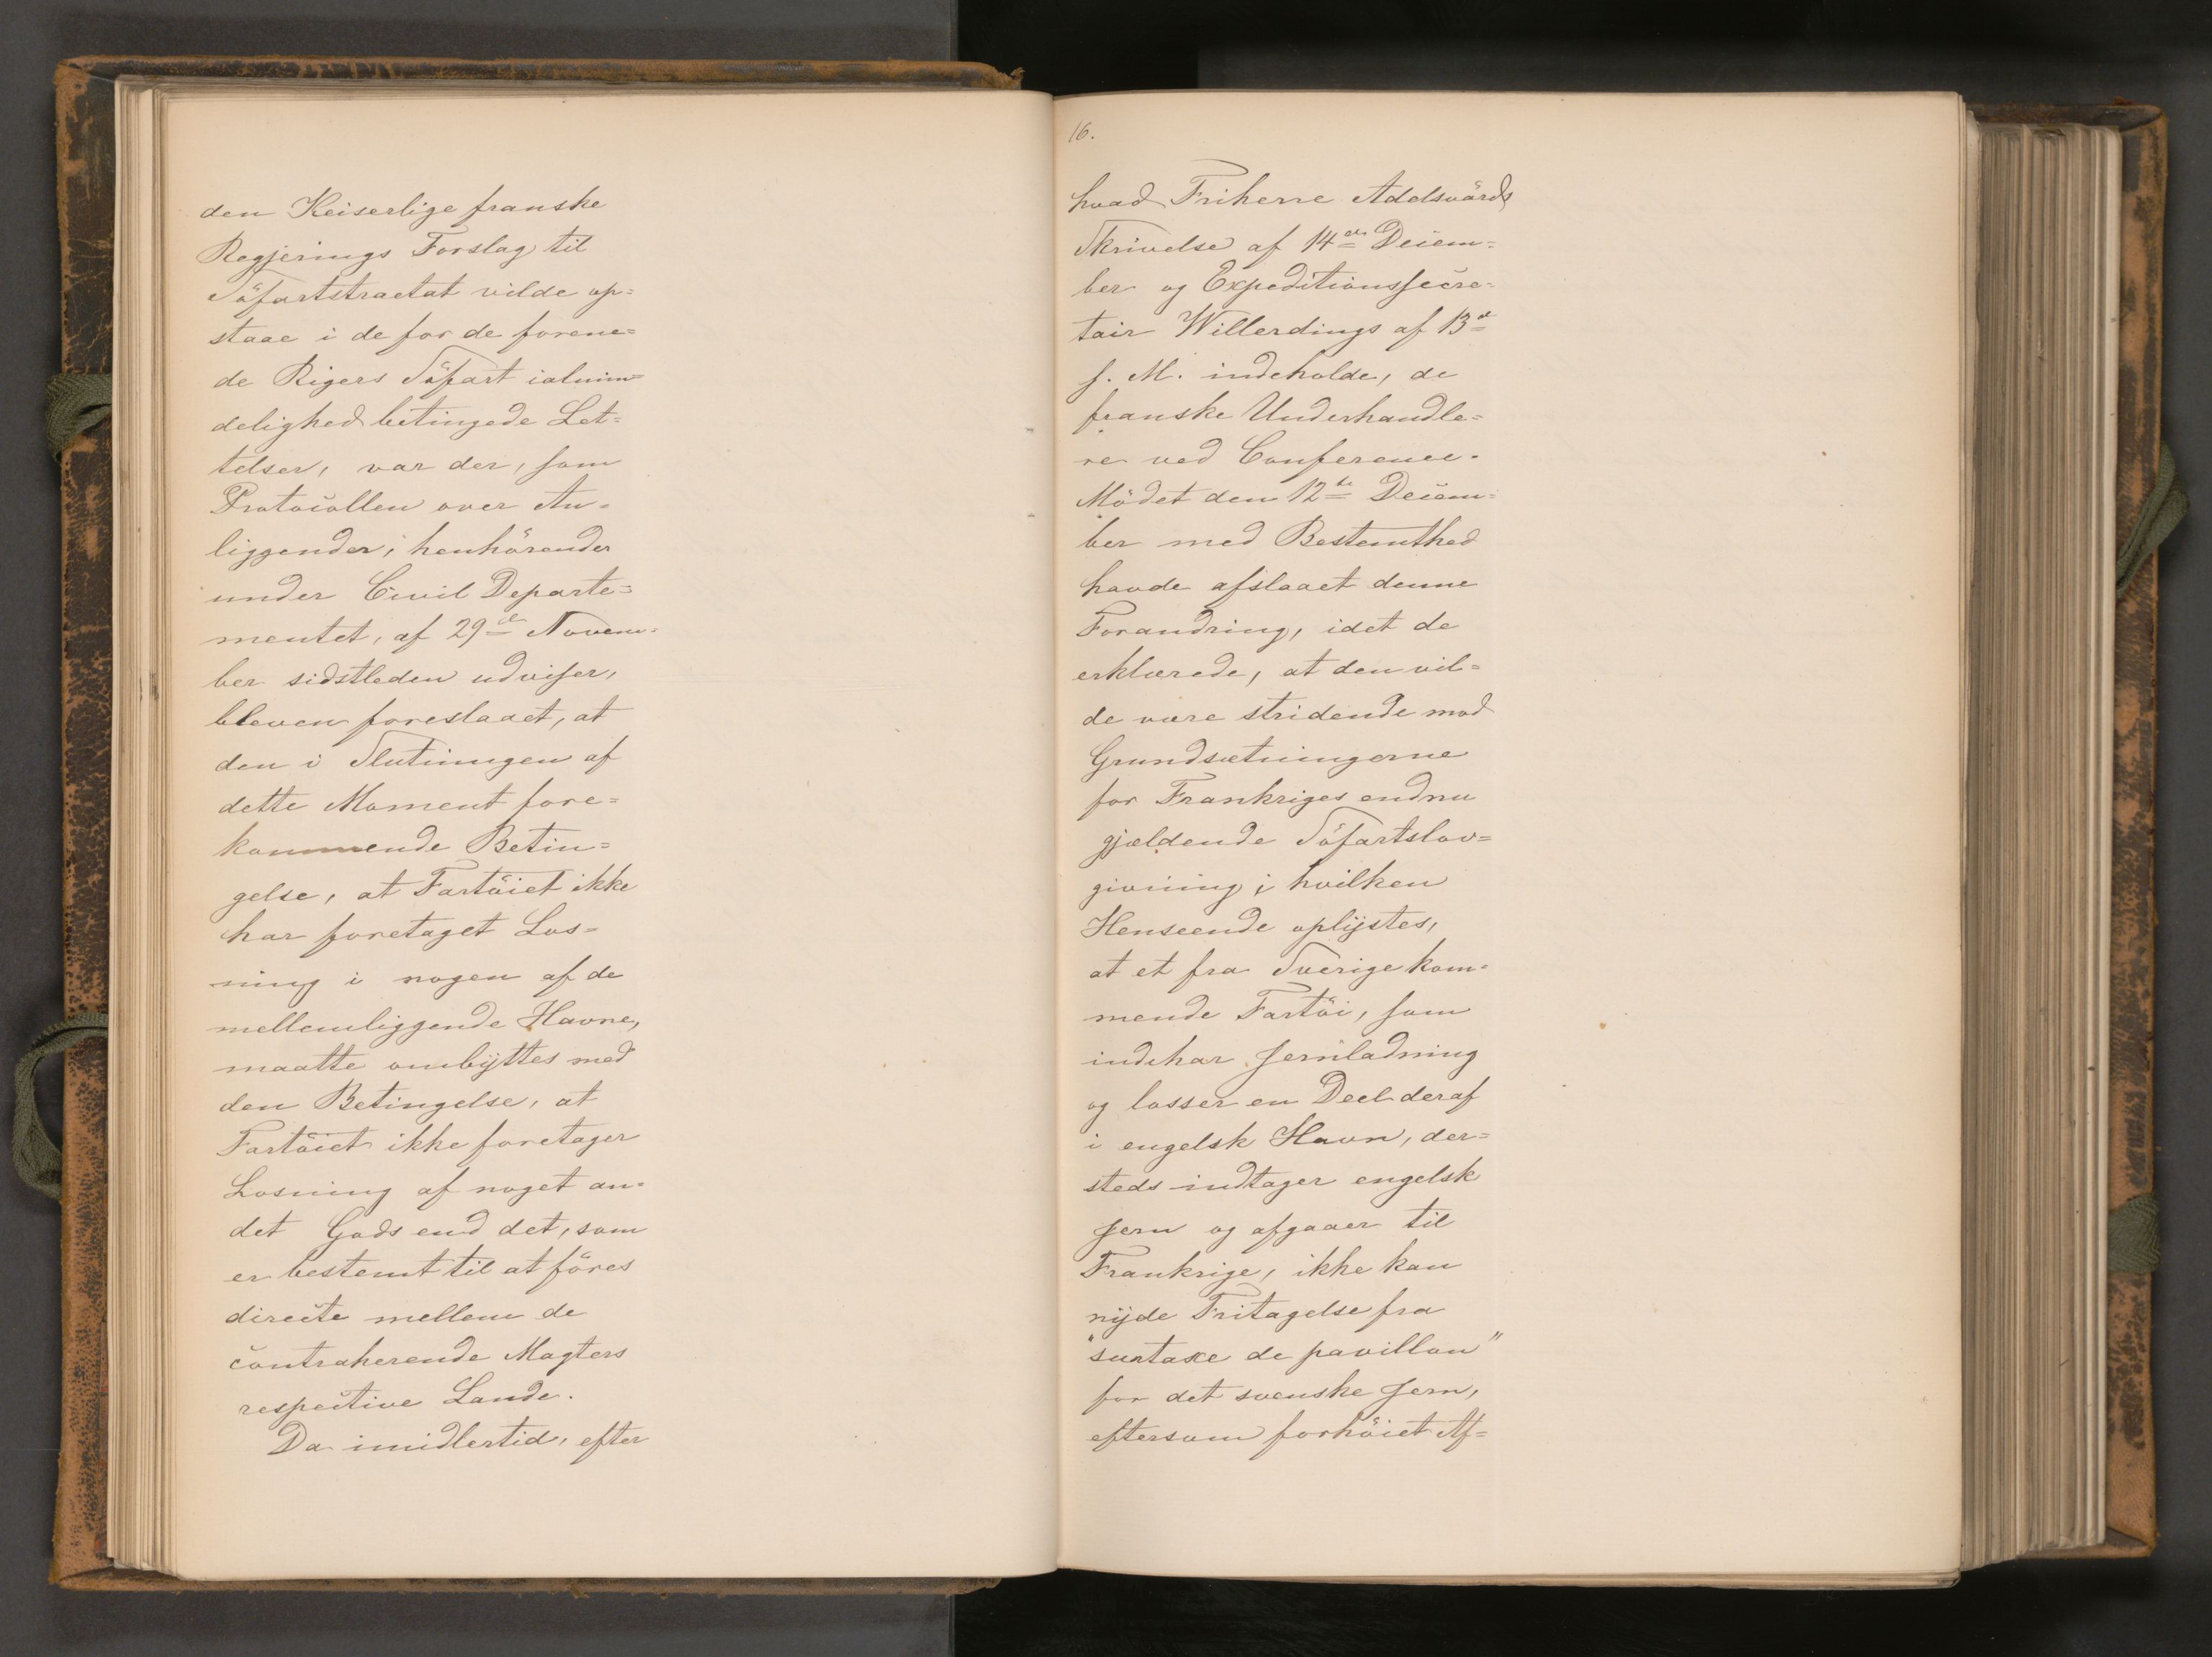 den Keiserlige franske
Regjerings Forslag til
Söfartstractat vilde op=
staae i de for de forene=
de Rigers Söfart ialmin=
delighed betingede Let=
telser, var der, som
Protocollen over An=
liggender, henhörender
under Civil Departe=
mentet, af 29de Novem=
ber sidstleden udviser,
bleven foreslaaet, at
den i Slutningen af
dette Moment fore=
kommende Betin=
gelse, at Fartöiet ikke
har foretaget Los=
ning i nogen af de
mellemliggende Havne,
maatte ombyttes med
den Betingelse, at
Fartöiet ikke foretager
Losning af noget an=
det Gods end det, som
er bestemt til at föres
directe mellem de
contraherende Magters
respective Lande.
Da imidlertid, efter
16.
hvad Friherre Adelsvärds
Skrivelse af 14de Decem=
ber og Expeditionssecre=
tair Willerdings af 13de
s. M. indeholde, de
franske Underhandle=
re ved Conference=
Mödet den 12te Decem=
ber med Bestemthed
havde afslaaet denne
Forandring, idet de
erklærede, at den vil=
de være stridende mod
Grundsætningerne
for Frankriges endnu
gjældende Söfartslov=
givning, i hvilken
Henseende oplystes,
at et fra Sverige kom=
mende Fartöi, som
indehar Jernladning
og losser en Deel deraf
i engelsk Havn, der=
steds indtager engelsk
Jern og afgaaer til
Frankrige, ikke kan
nyde Fritagelse fra
"surtaxe de pavillon"
for det svenske Jern,
eftersom forhöiet Af=